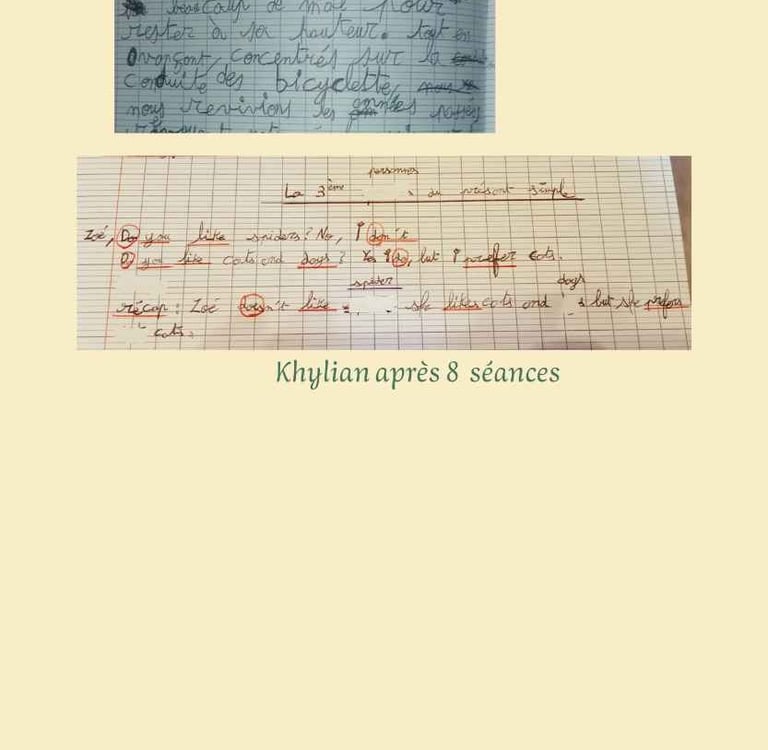 beaucoup de mal pour
rester à sa hauteur. Tout en
avançant, concentrés sur la
conduite des bicyclette,
nous revivions les années passées
personnes
La 3ème au présent simple
Zoé, Do you like spiders? No, I don't
D you like cats and dogs? Yes I do, but I prefer cats.
spider dogs
récap: Zoé doesn't like she likes cats and but she prefers
cats.
Khylian après 8 séances